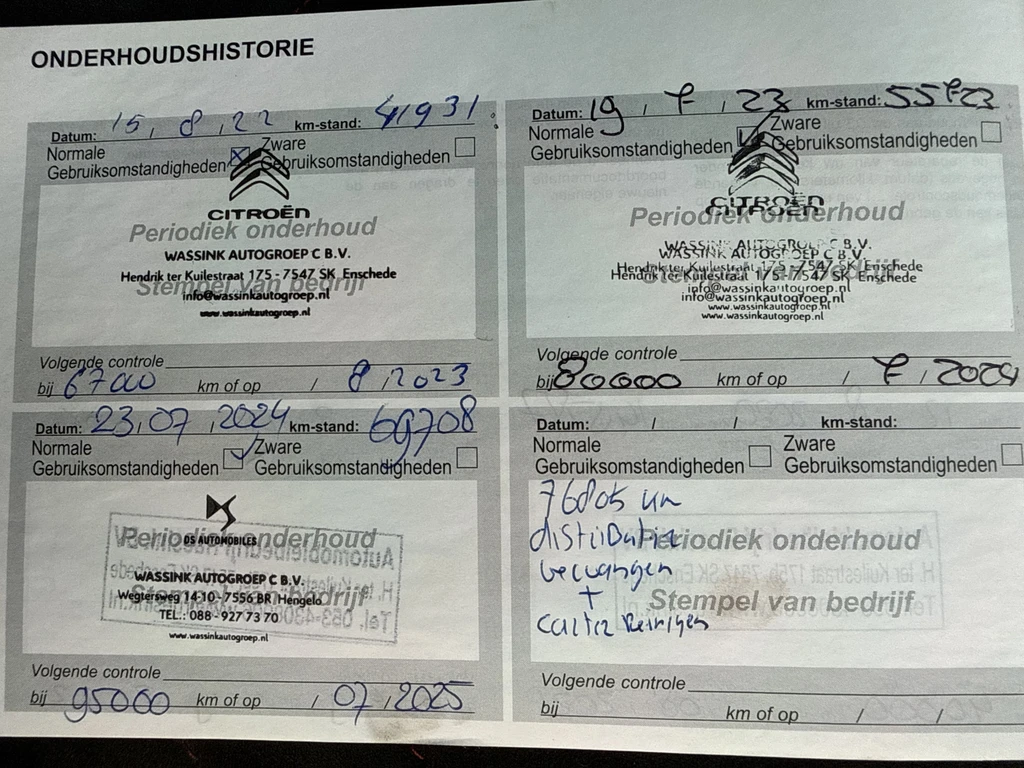 ONDERHOUDSHISTORIE
Datum: 15 , 8 , 22 km-stand: 41931
Normale Zware
Gebruiksomstandigheden Gebruiksomstandigheden
CITROËN
Periodiek onderhoud
WASSINK AUTOGROEP C B.V.
Hendrik ter Kuilestraat 175 - 7547 SK Enschede
Stempel van bedrijf
info@wassinkautogroep.nl
www.wassinkautogroep.nl
Volgende controle
bij 67000 km of op / 8 / 2023
Datum: 19 , 7 , 23 km-stand: 55723
Normale Zware
Gebruiksomstandigheden Gebruiksomstandigheden
CITROËN
Periodiek onderhoud
WASSINK AUTOGROEP C B.V.
Hendrik ter Kuilestraat 175 - 7547 SK Enschede
Stempel van bedrijf
info@wassinkautogroep.nl
www.wassinkautogroep.nl
Volgende controle
bij 80000 km of op / 7 / 2024
Datum: 23 , 07 , 2024 km-stand: 69708
Normale Zware
Gebruiksomstandigheden Gebruiksomstandigheden
Periodiek onderhoud
DS AUTOMOBILES
WASSINK AUTOGROEP C B.V.
Stempel van bedrijf
Wegtersweg 14-10 - 7556 BR Hengelo
TEL.: 088 - 927 73 70
www.wassinkautogroep.nl
Volgende controle
bij 95000 km of op / 07 / 2025
Datum: / / km-stand:
Normale Zware
Gebruiksomstandigheden Gebruiksomstandigheden
76805 km
distributie
Periodiek onderhoud
vervangen
+
Stempel van bedrijf
carter Reinigen
Volgende controle
bij km of op / /